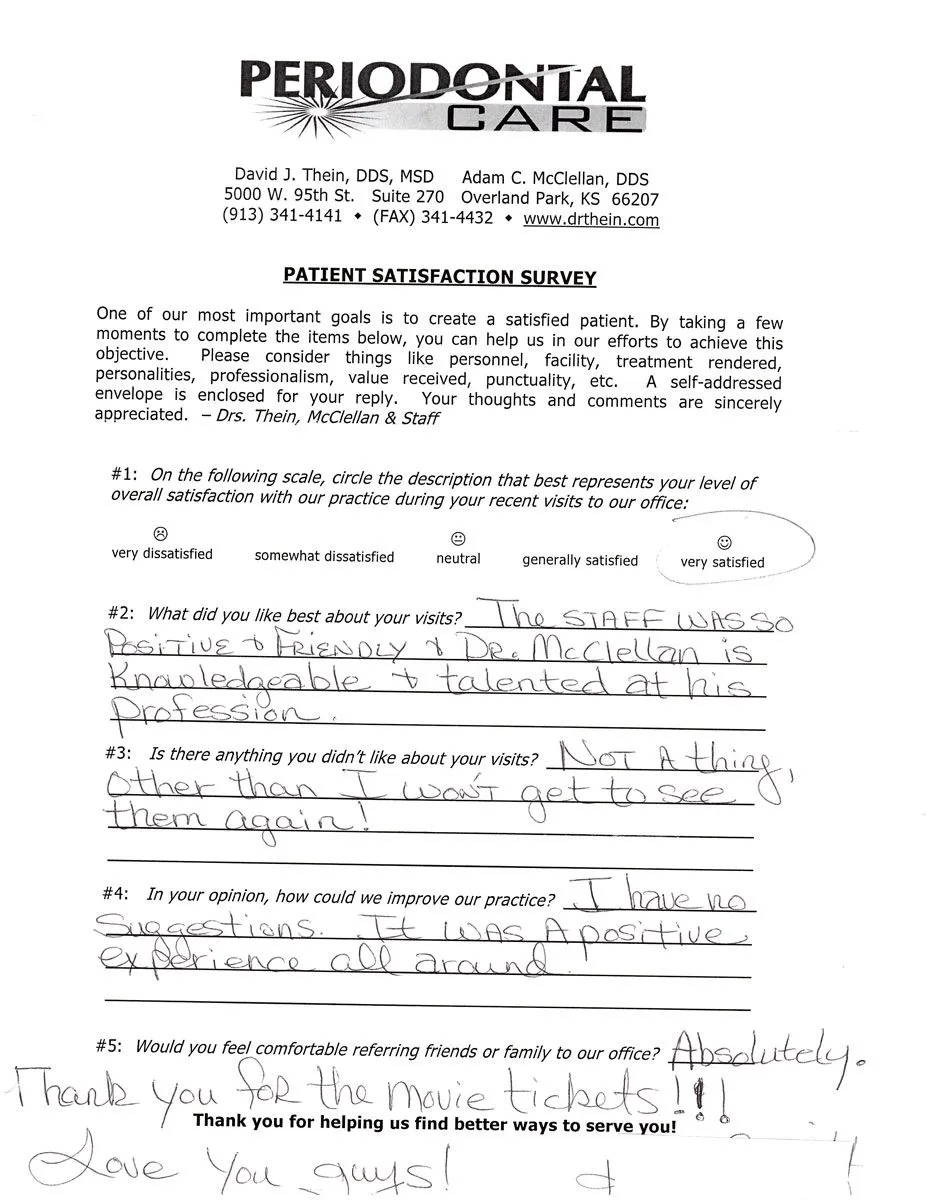 PERIODONTAL
CARE
David J. Thein, DDS, MSD Adam C. McClellan, DDS
5000 W. 95th St. Suite 270 Overland Park, KS 66207
(913) 341-4141 ♦ (FAX) 341-4432 ♦ www.drthein.com
PATIENT SATISFACTION SURVEY
One of our most important goals is to create a satisfied patient. By taking a few
moments to complete the items below, you can help us in our efforts to achieve this
objective. Please consider things like personnel, facility, treatment rendered,
personalities, professionalism, value received, punctuality, etc. A self-addressed
envelope is enclosed for your reply. Your thoughts and comments are sincerely
appreciated. – Drs. Thein, McClellan & Staff
#1: On the following scale, circle the description that best represents your level of
overall satisfaction with our practice during your recent visits to our office:
very dissatisfied somewhat dissatisfied neutral generally satisfied very satisfied
#2: What did you like best about your visits? The STAFF WAS SO
POSITIVE + FRIENDLY + DR. McClellan is
Knowledgeable + talented at his
profession.
#3: Is there anything you didn't like about your visits? NOT A thing,
other than I won't get to see
them again!
#4: In your opinion, how could we improve our practice? I have no
Suggestions. It WAS A positive
experience all around.
#5: Would you feel comfortable referring friends or family to our office? Absolutely.
Thank you for the movie tickets!!!
Thank you for helping us find better ways to serve you!
Love You guys!